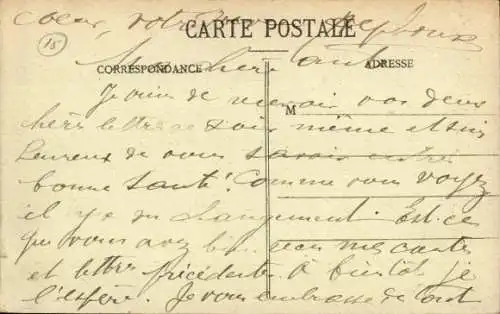 coeur, votre
CARTE POSTALE
15
Ma chère tante
CORRESPONDANCE
ADRESSE
Je viens de recevoir vos deux
M
chères lettres ce soir même et suis
heureux de vous savoir en très
bonne santé! Comme vous voyez
il y a du changement. Est-ce
que vous avez bien reçu mes cartes
et lettres précédentes. à bientôt je
l'espère. Je vous embrasse de tout